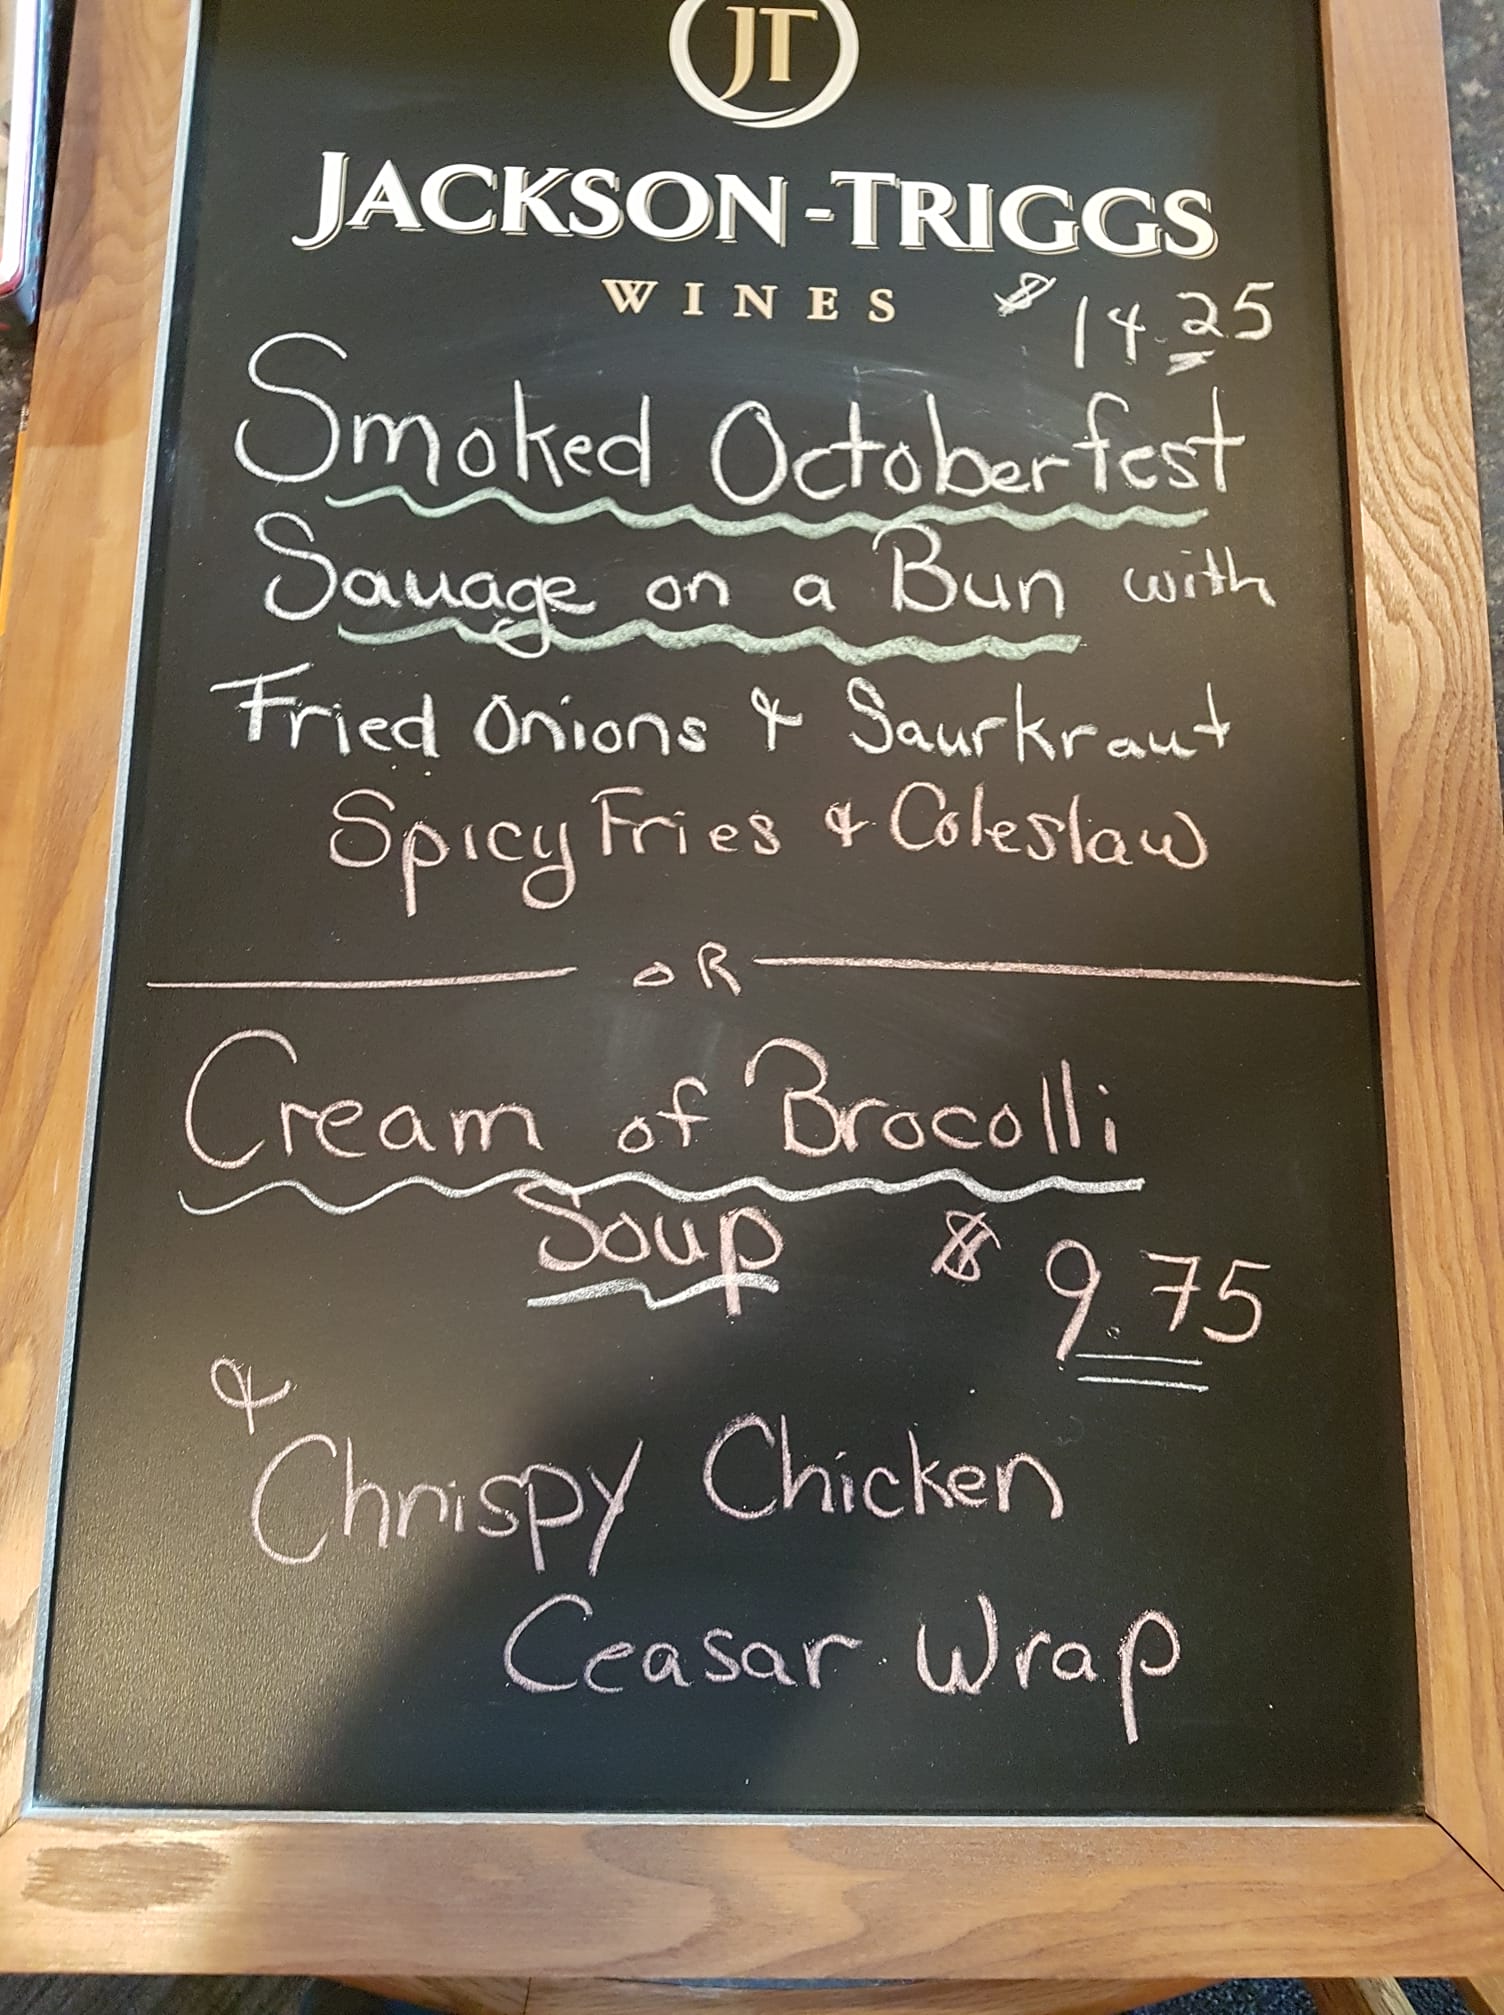 JT
JACKSON-TRIGGS
WINES
$ 14.25
Smoked Octoberfest
Sauage on a Bun with
Fried Onions & Saurkraut
Spicy Fries & Coleslaw
OR
Cream of Brocolli
Soup $ 9.75
&
Chrispy Chicken
Ceasar Wrap